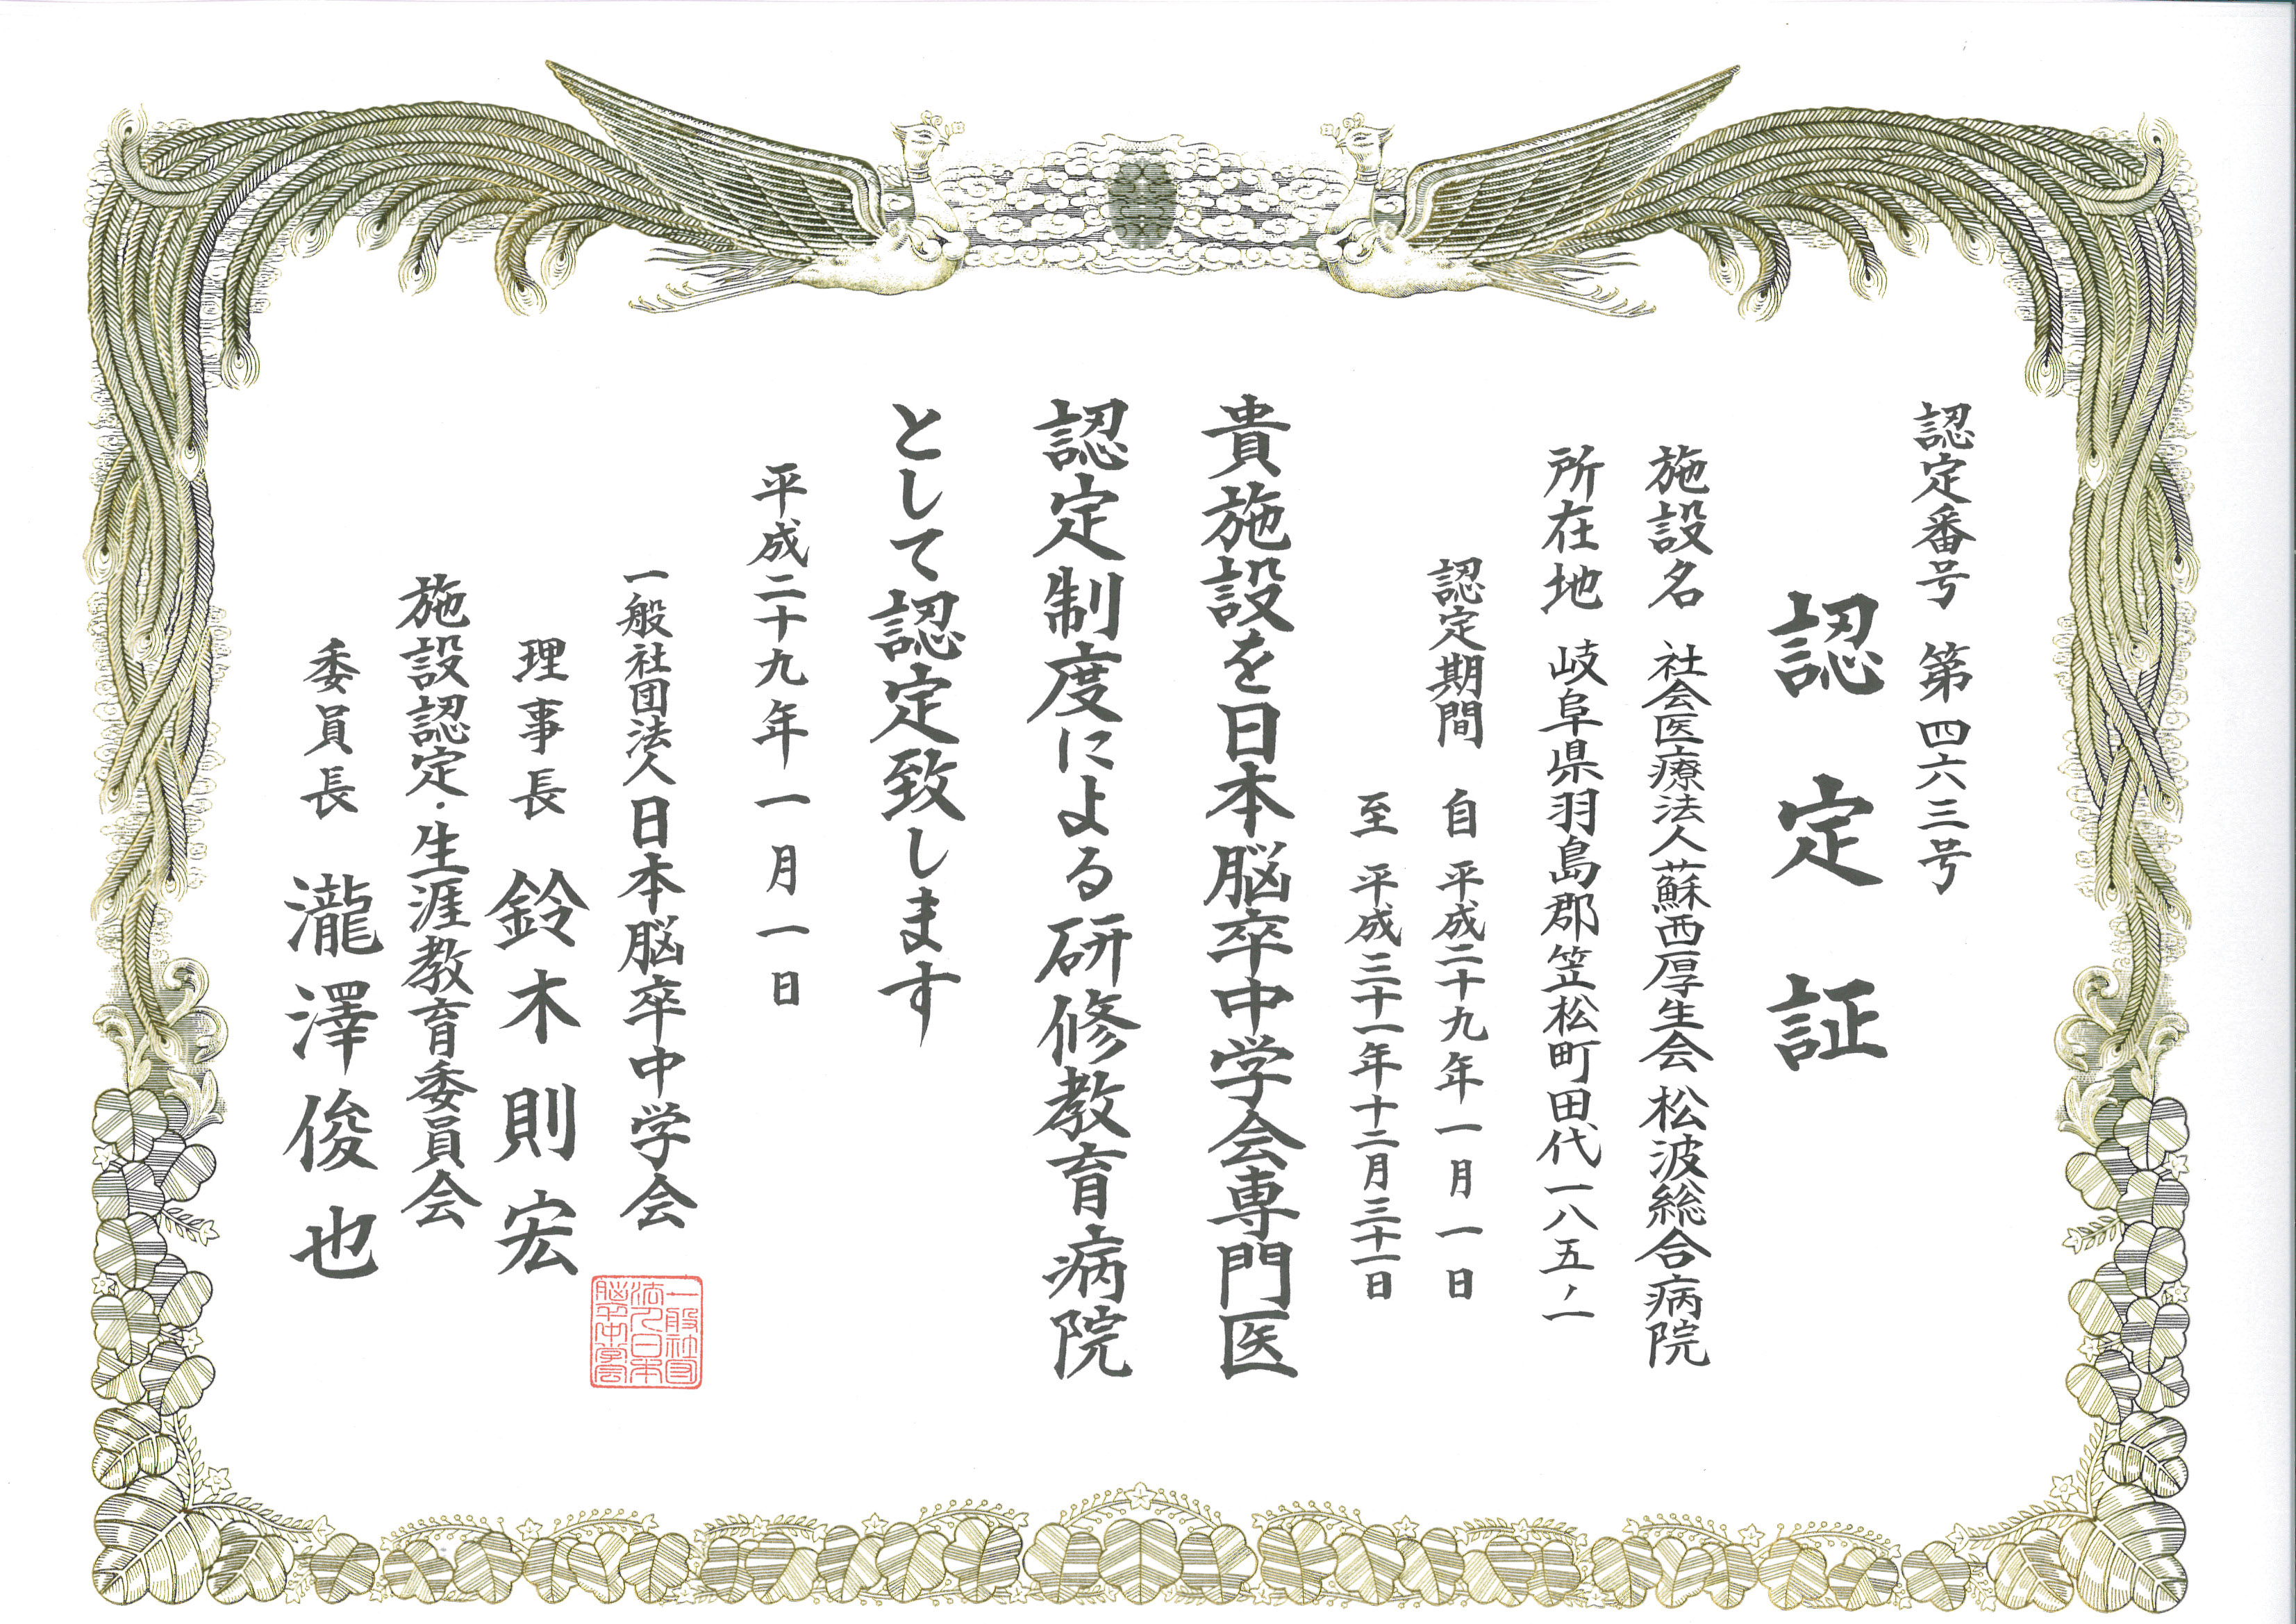 認定番号 第四六三号
認定証
施設名 社会医療法人蘇西厚生会 松波総合病院
所在地 岐阜県羽島郡笠松町田代一八五ノ一
認定期間 自 平成二十九年一月一日
至 平成三十一年十二月三十一日
貴施設を日本脳卒中学会専門医
認定制度による研修教育病院
として認定致します
平成二十九年一月一日
一般社団法人日本脳卒中学会
理事長 鈴木則宏
施設認定・生涯教育委員会
委員長 瀧澤俊也
一般社団
法人日本
脳卒中学会